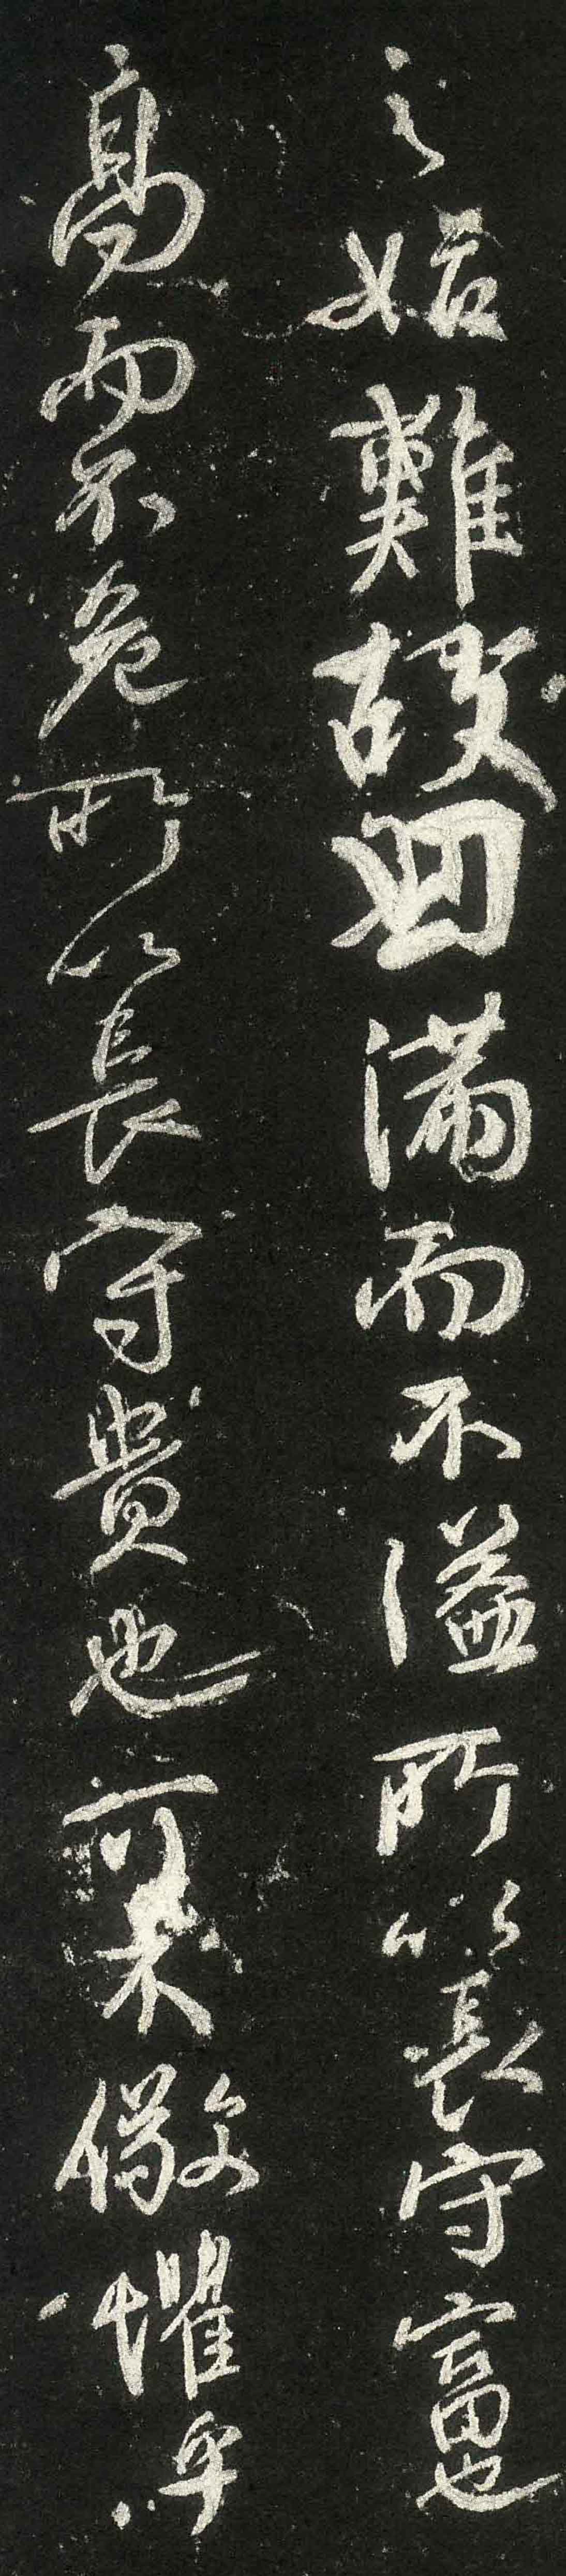 之始難故曰滿而不溢所以長守富也
高而不危所以長守貴也可不儆懼乎